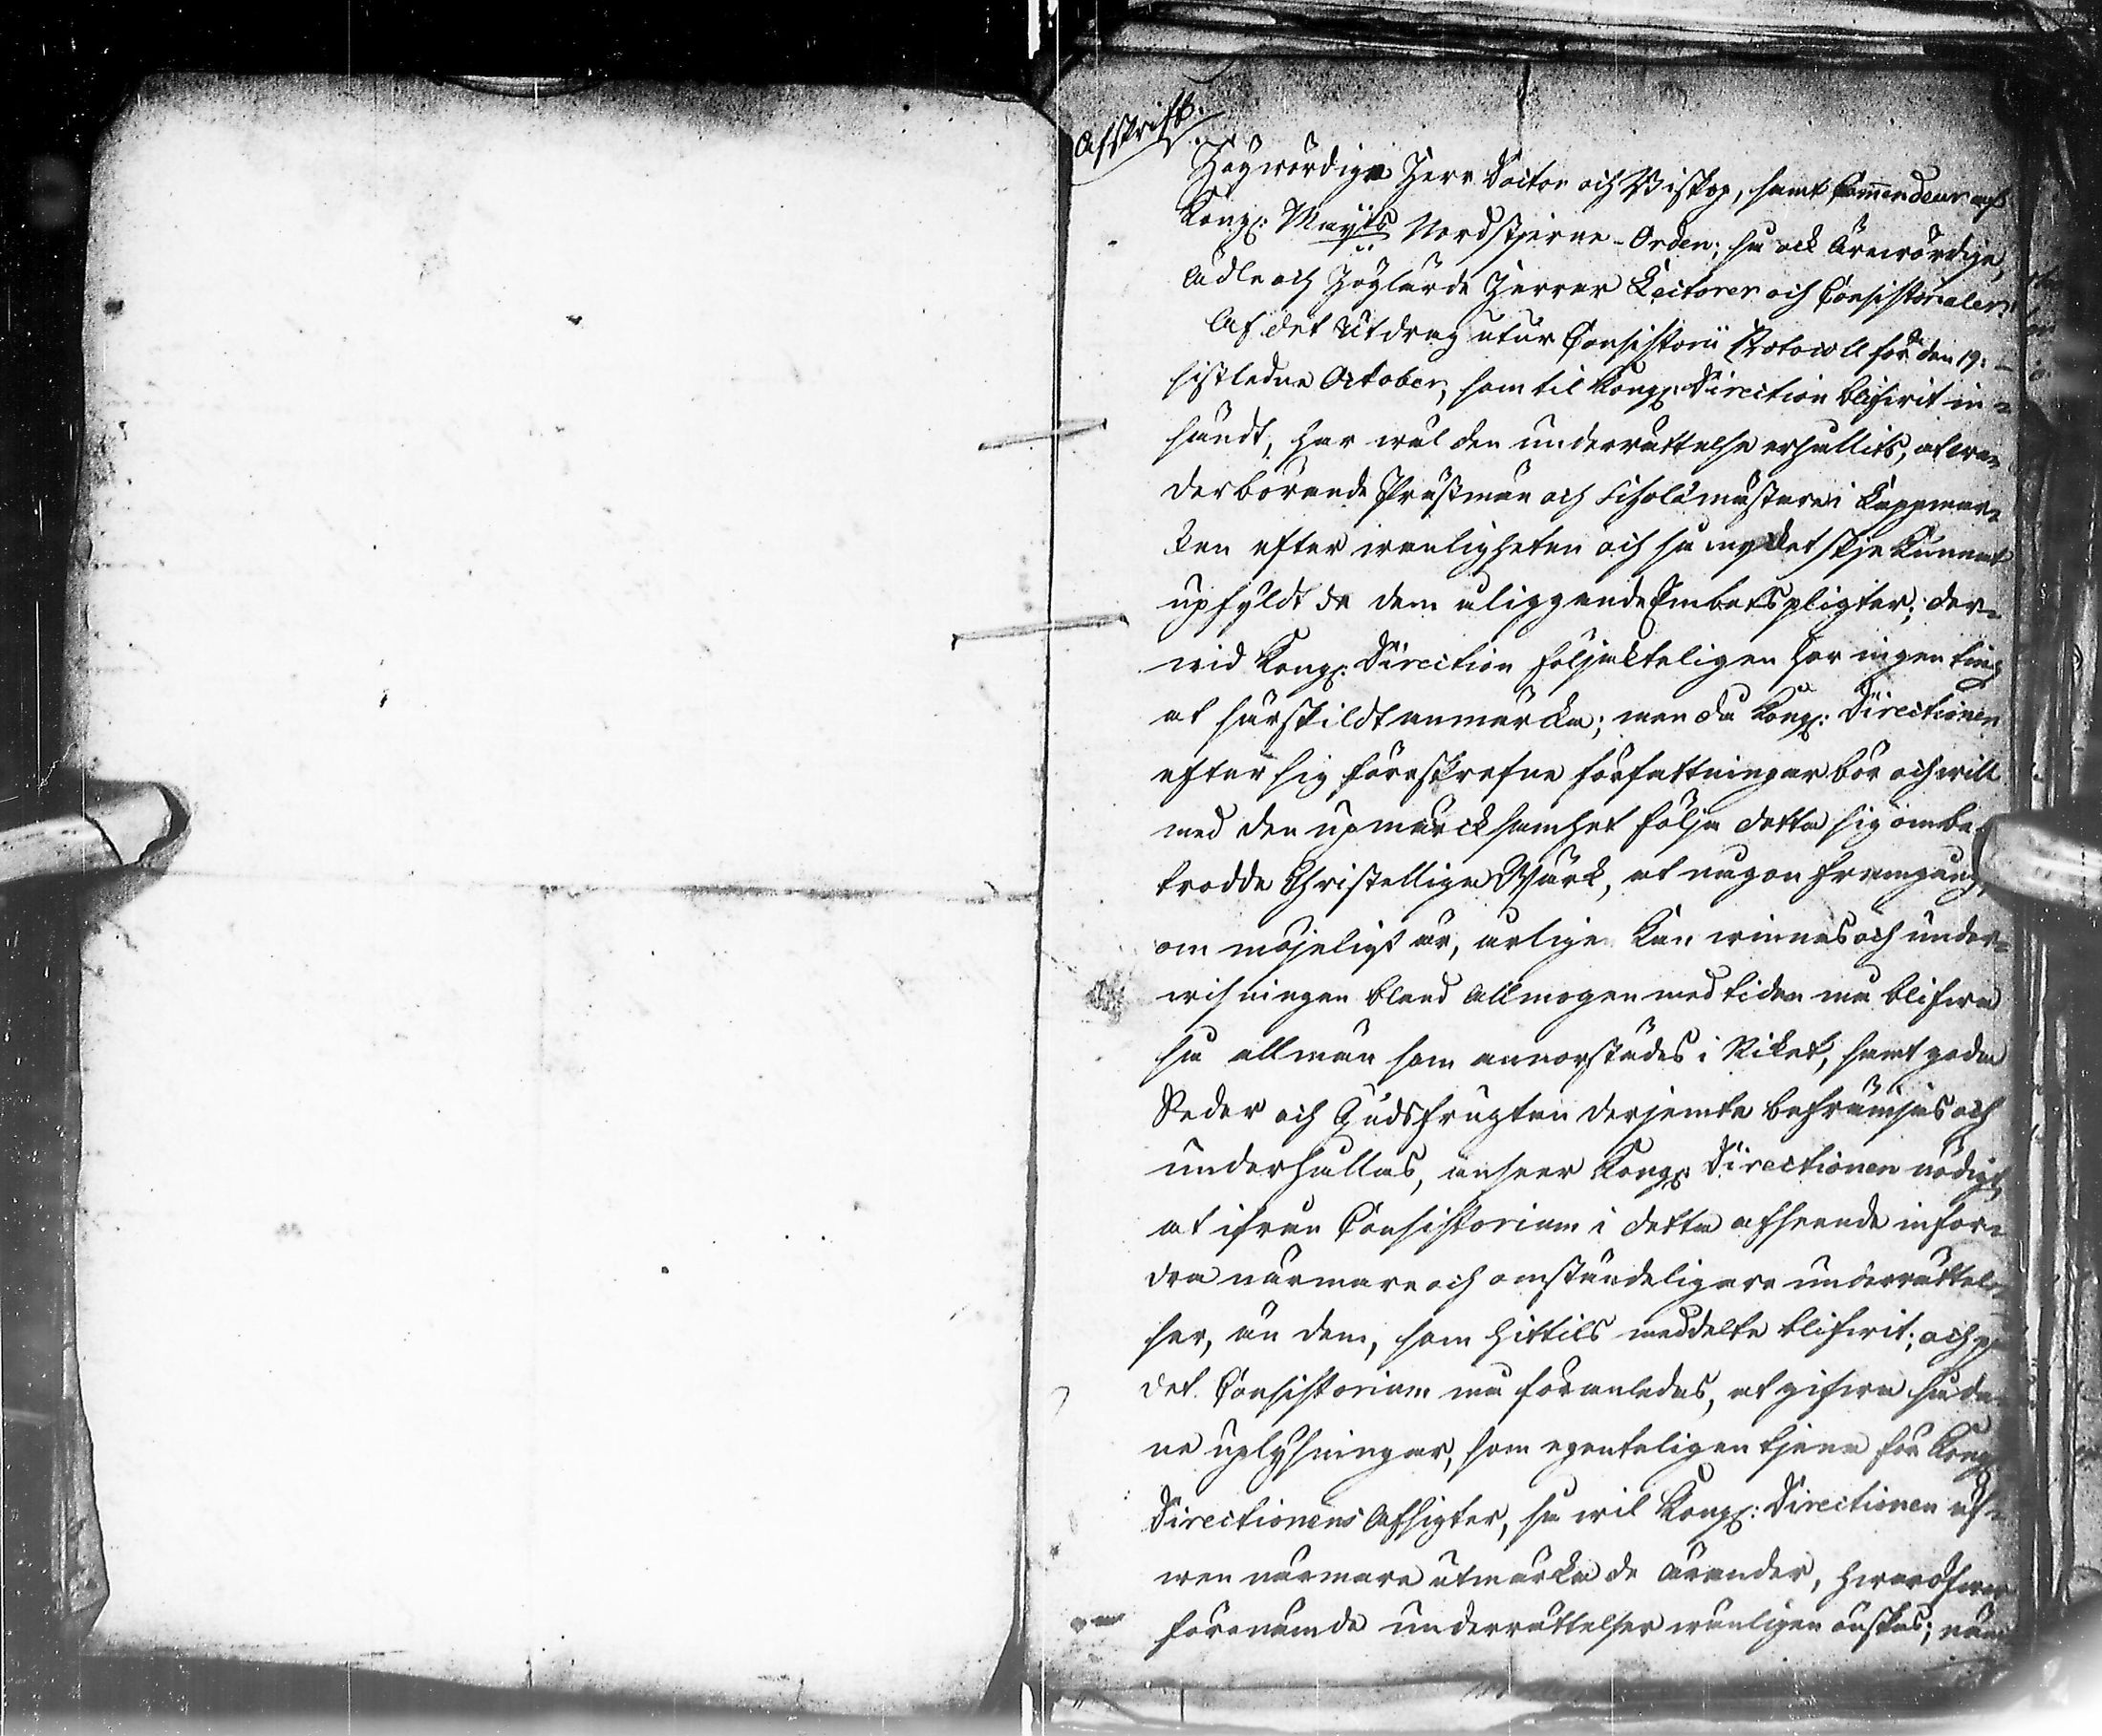 Afskrift.
Högwördige Herr Doctor och Biskop, samt Commendeur af
Kongl: Maij:ts Nordstjerne-Orden; så ock Ärewördige,
Ädle och Höglärde Herrar Lectorer och Consistorialer.
Af det Utdrag utur Consistorii Protocoll för den 19:de
sistledne October, som til Kongl: Direction blifwit in-
sändt, har wäl den underrättelse erhållits, at wer-
derbörande Prästmän och Scholämästare i Lappmar-
ken efter wanligheten och så mycket skje kunnat
upfyldt de dem åliggande Embetspligter; der-
wid Kongl: Direction följakteligen har ingen ting
at särskildt anmärcka; men då Kongl: Directionen
efter sig föreskrefne författningar bör och will
med den upmärcksamhet följa detta sig ombe-
trodde Christelliga Wärk, at någon framgång,
om möjeligt är, årligen kan winnas och under-
wisningen bland Allmogen med tiden må blifwa
så allmän som annorstädes i Riket, samt goda
Seder och Gudsfrugten derjemte befrämjas och
underhållas, anseer Kongl: Directionen nödigt,
at ifrån Consistorium i detta afseende infor-
dra närmare och omständeligare underrättel-
ser, än dem, som hittils meddelte blifwit; och på
det Consistorium må föranledas, at gifwa såda-
ne uplysningar, som egenteligen tjena för Kongl:
Directionens Afsigter, så wil Kongl: Directionen äf-
wen närmare utmärka de Ärender, hwaröfwer
förenämde underrättelser wänligen äskas; näml: